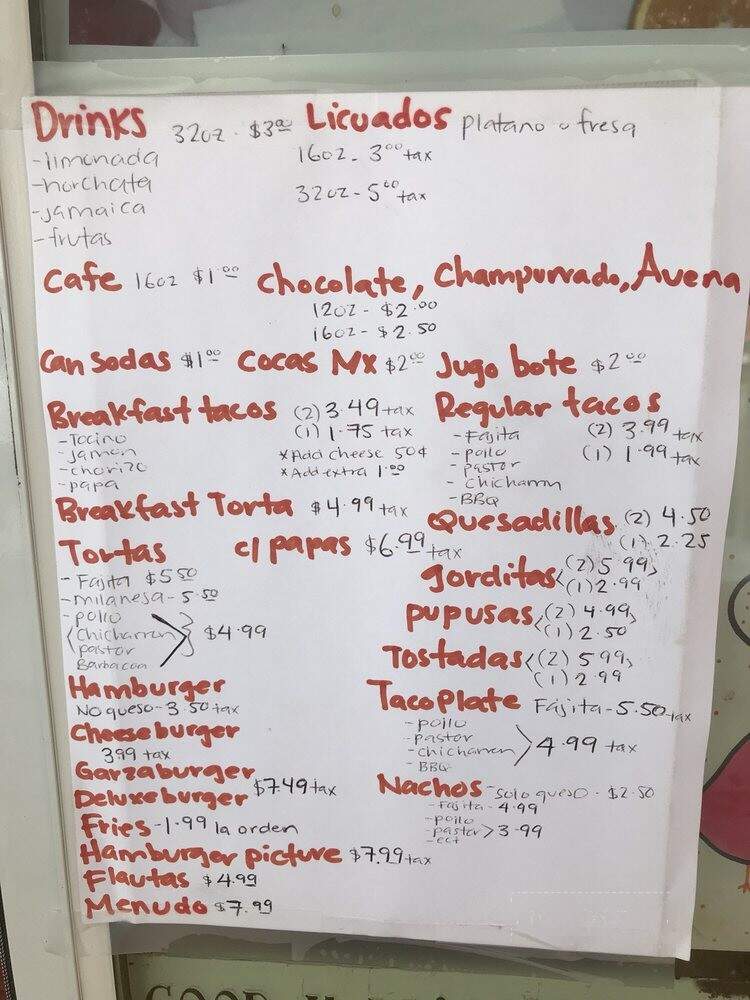 Drinks 32oz - $3.00 Licuados platano o fresa
-limonada
16oz - 3.00 +tax
-horchata
32oz - 5.00 +tax
-jamaica
-frutas
Cafe 16oz $1.00 Chocolate, Champurrado, Avena
12oz - $2.00
16oz - $2.50
Can Sodas $1.00 Cocas Mx $2.00 Jugo bote $2.00
Breakfast tacos (2) 3.49 +tax
-Tocino (1) 1.75 tax
-jamon *Add cheese 50¢
-chorizo *Add extra 1.00
-papa
Regular tacos
-Fajita (2) 3.99 tax
-pollo (1) 1.99 +tax
-pastor
-chicharrn
-BBQ
Breakfast Torta $4.99 tax
c/ papas $6.99 tax
Tortas
-Fajita $5.50
-milanesa - 5.50
-pollo
Chicharron $4.99
pastor
Barbacoa
Quesadillas (2) 4.50
(1) 2.25
gorditas (2) 5.99
(1) 2.99
pupusas (2) 4.99
(1) 2.50
Tostadas (2) 5.99
(1) 2.99
Hamburger
No queso - 3.50 +tax
Cheeseburger
3.99 tax
Garzaburger
Deluxeburger $7.49 +tax
Fries - 1.99 la orden
Hamburger picture $7.99 +tax
Flautas $4.99
Menudo $7.99
Taco Plate Fajita - 5.50 +tax
-pollo
-pastor
-chicharron 4.99 tax
-BBQ
Nachos - solo queso - $2.50
-Fajita - 4.99
-pollo
-pastor > 3.99
-ect